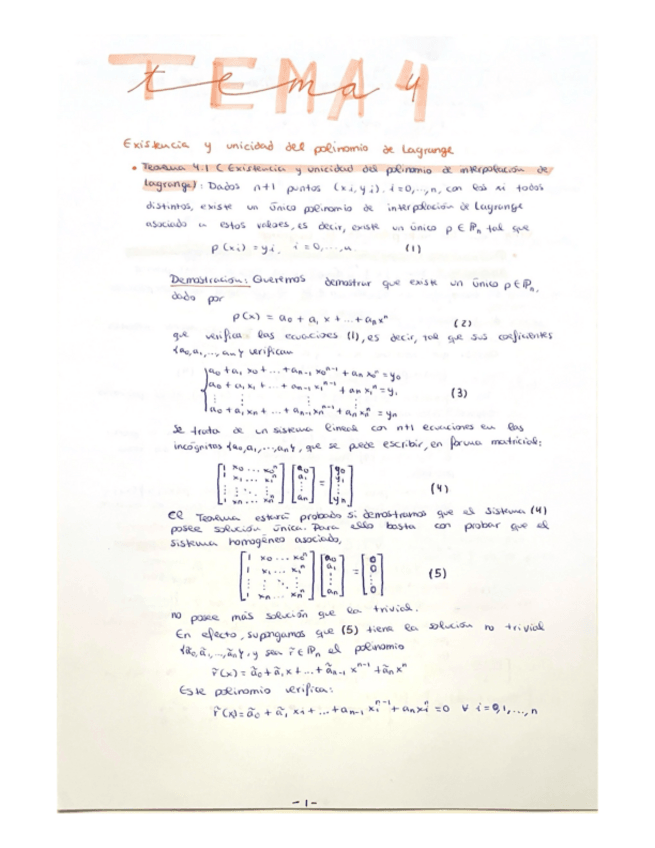 TEMA 4
tema
Existencia y unicidad del polinomio de Lagrange
• Teorema 4.1 (Existencia y unicidad del polinomio de interpolación de
Lagrange): Dados n+1 puntos (xi, yi), i=0,...,n, con los xi todos
distintos, existe un único polinomio de interpolación de Lagrange
asociado a estos valores, es decir, existe un único p ∈ ℙn tal que
p(xi) = yi, i=0,...,n. (1)
Demostración: Queremos demostrar que existe un único p ∈ ℙn,
dado por
p(x) = a₀ + a₁ x + ... + anxⁿ (2)
que verifica las ecuaciones (1), es decir, tal que sus coeficientes
{a₀,a₁,...,an} verifican
a₀ + a₁ x₀ + ... + an-1 x₀ⁿ⁻¹ + an x₀ⁿ = y₀
a₀ + a₁ x₁ + ... + an-1 x₁ⁿ⁻¹ + an x₁ⁿ = y₁
⋮ ⋮ ⋮ ⋮ (3)
a₀ + a₁ xn + ... + an-1 xnⁿ⁻¹ + an xnⁿ = yn
Se trata de un sistema lineal con n+1 ecuaciones en las
incógnitas {a₀,a₁,...,an}, que se puede escribir, en forma matricial:
[1 x₀ ... x₀ⁿ] [a₀] [y₀]
[1 x₁ ... x₁ⁿ] [a₁] = [y₁]
[⋮ ⋮ ⋱ ⋮] [⋮] [⋮] (4)
[1 xn ... xnⁿ] [an] [yn]
El Teorema estará probado si demostramos que el sistema (4)
posee solución única. Para ello basta con probar que el
sistema homogéneo asociado,
[1 x₀ ... x₀ⁿ] [a₀] [0]
[1 x₁ ... x₁ⁿ] [a₁] = [0]
[⋮ ⋮ ⋱ ⋮] [⋮] [⋮] (5)
[1 xn ... xnⁿ] [an] [0]
no posee más solución que la trivial.
En efecto, supongamos que (5) tiene la solución no trivial
{ã₀,ã₁,...,ãn}, y sea r̃ ∈ ℙn el polinomio
r̃(x) = ã₀ + ã₁ x + ... + ãn-1 xⁿ⁻¹ + ãn xⁿ
Este polinomio verifica:
r̃(x) = ã₀ + ã₁ xi + ... + an-1 xiⁿ⁻¹ + anxiⁿ = 0 ∀ i=0,1,...,n
-1-